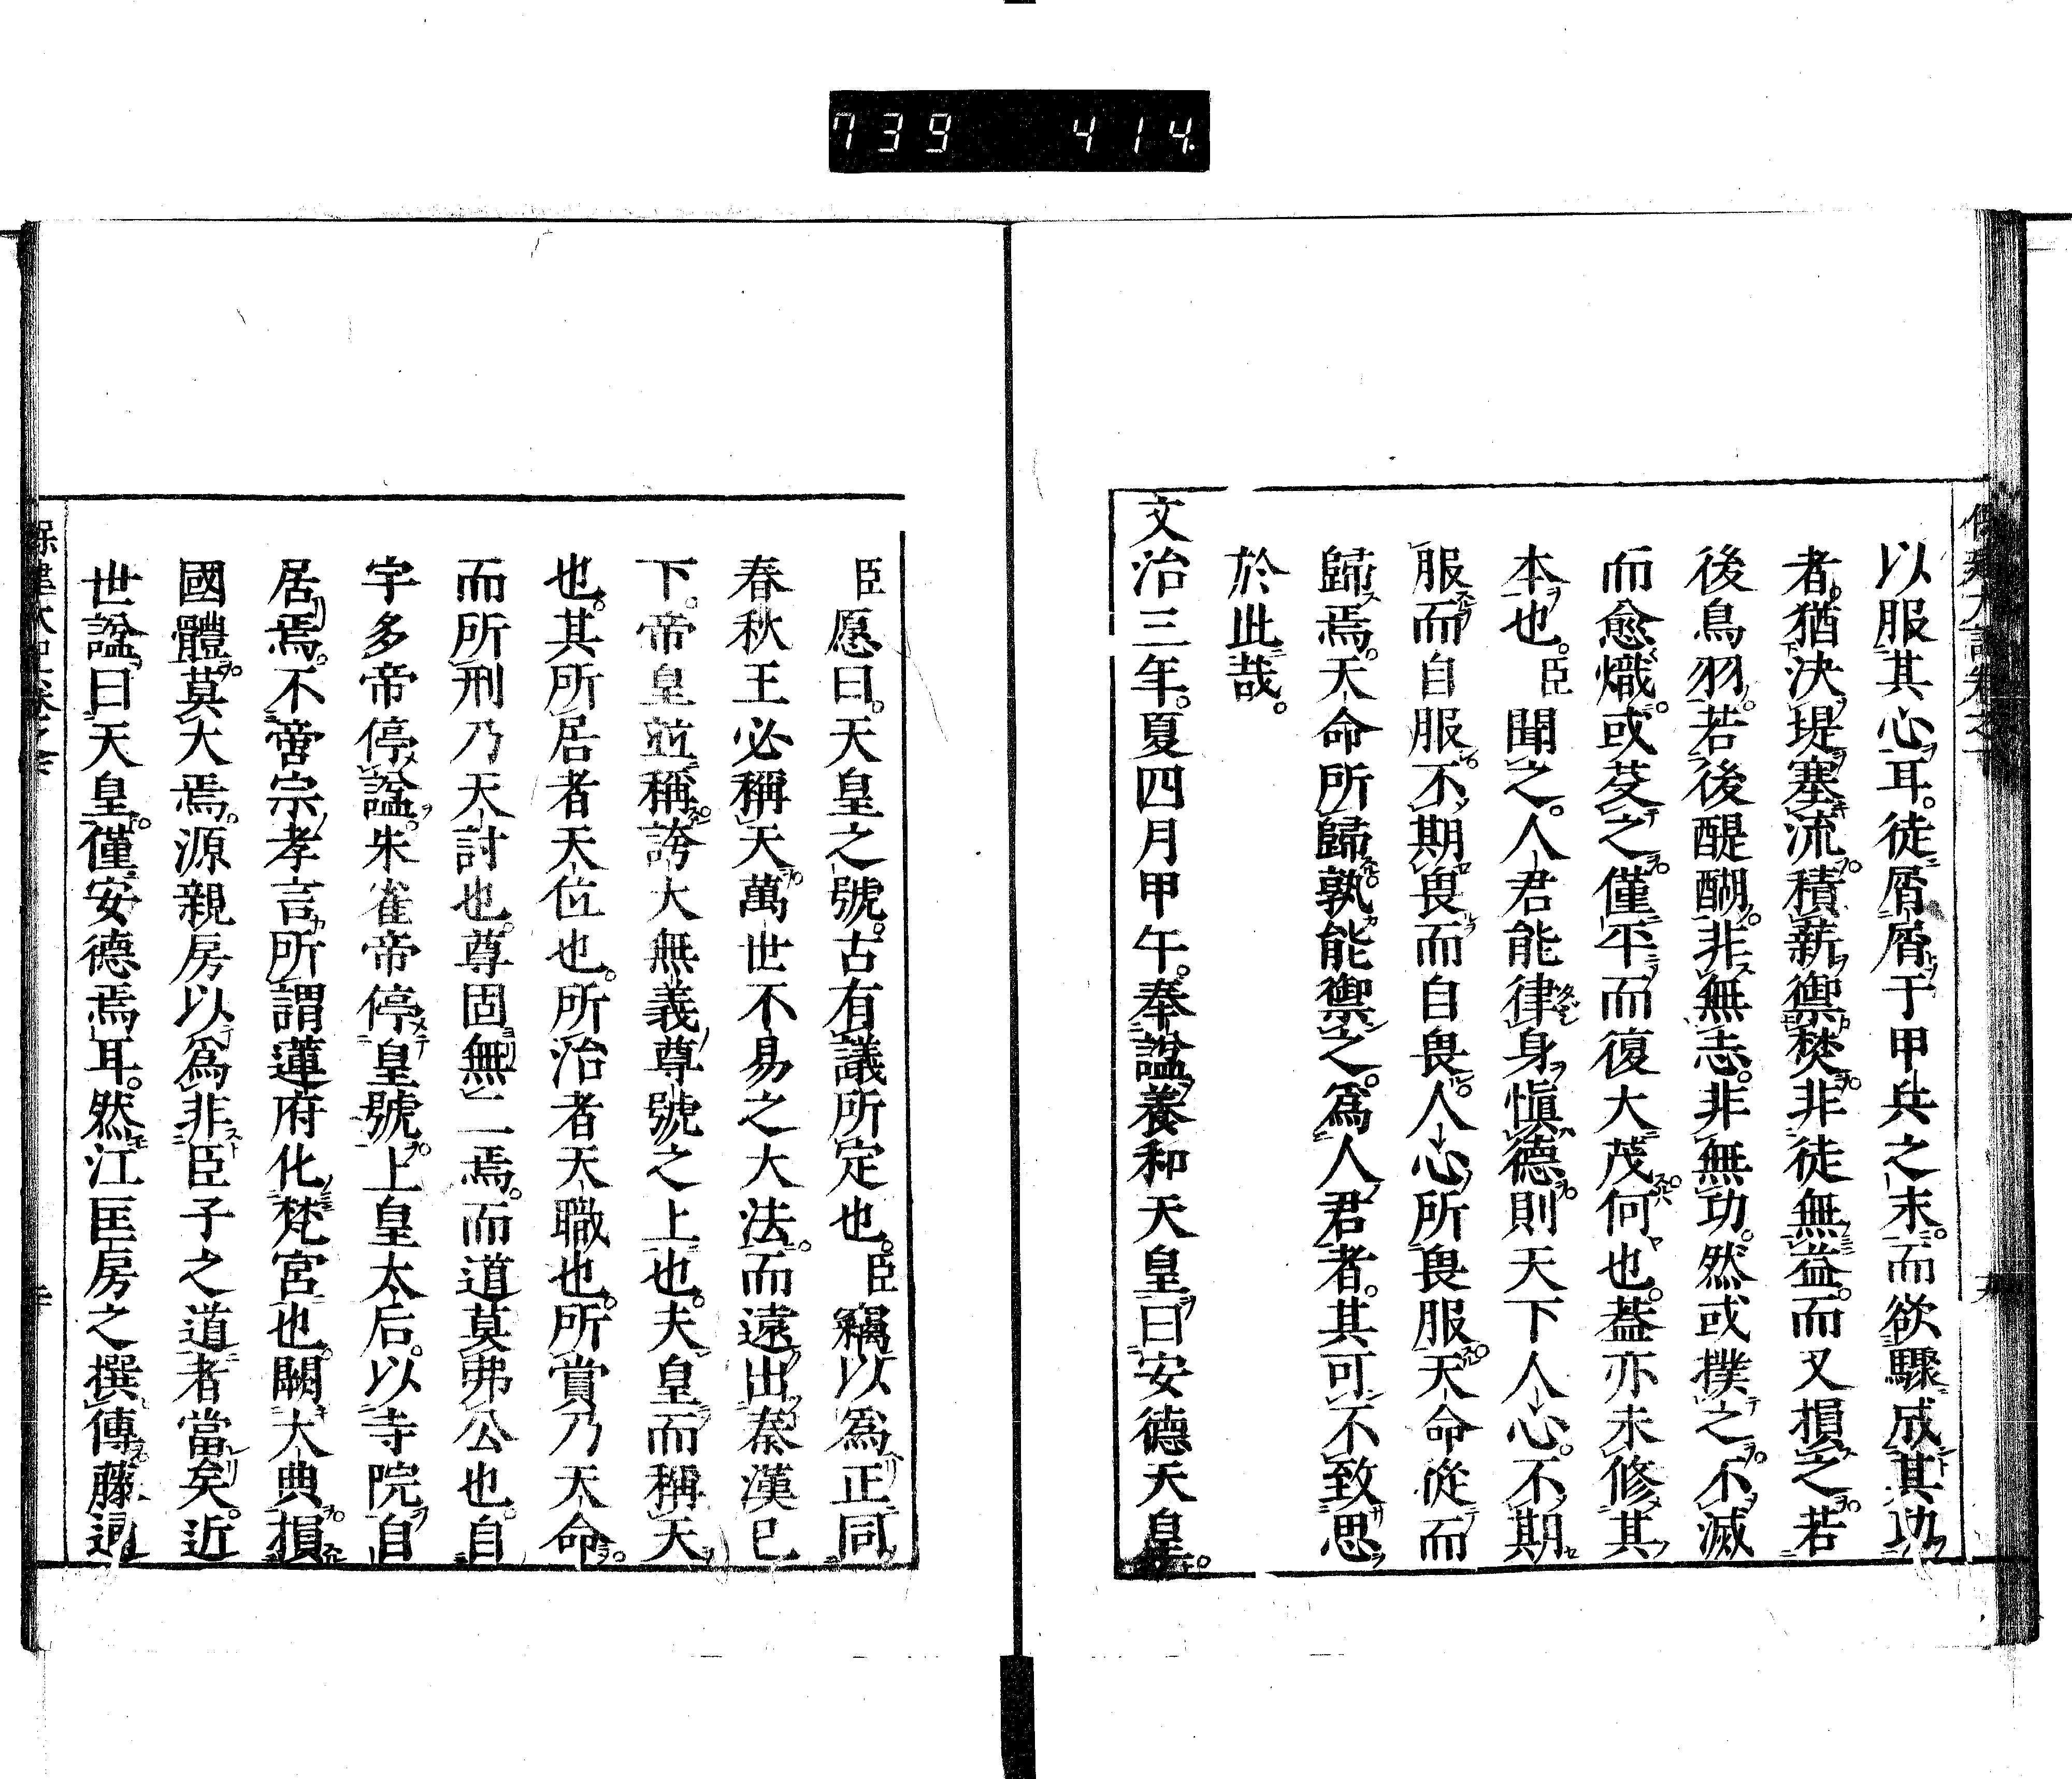 739 414
以服其心耳。徒屑屑于甲兵之末。而欲驟成其功
者。猶決堤塞流積薪禦焚。非徒無益。而又損之。若
後鳥羽。若後醍醐。非無志。非無功。然或撲之。不滅
而愈熾。或芟之。僅平而復大茂何也。蓋亦未修其
本也。臣聞之。人君能律身愼德。則天下人心。不期
服而自服。不期畏而自畏。人心所畏服。天命從而
歸焉。天命所歸。孰能禦之。爲人君者。其可不致思
於此哉。
文治三年。夏四月甲午。奉諡養和天皇曰安德天皇。
臣愿曰。天皇之號。古有議所定也。臣竊以爲正同
春秋王必稱天。萬世不易之大法。而遠出秦漢已
下。帝皇並稱。誇大無義尊號之上也。夫皇而稱天
也。其所居者天位也。所治者天職也。所賞乃天命。
而所刑乃天討也。尊固無二焉。而道莫弗公也。自
宇多帝停諡。朱雀帝停皇號。上皇太后。以寺院自
居焉。不啻宗孝言所謂蓮府化梵宮也。闕大典。損
國體。莫大焉。源親房以爲非臣子之道者當矣。近
世諡曰天皇。僅安德焉耳。然江匡房之撰傳。藤通